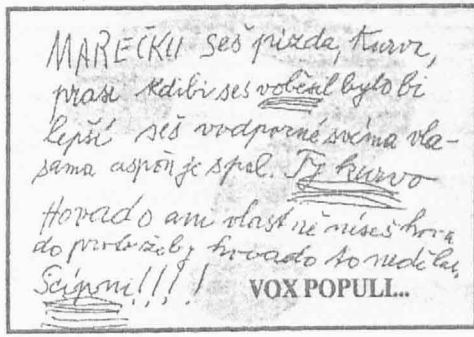 MAREČKU seš pizda, kurvo,
prase kdibi ses voběsil bylo bi
lepší seš vodporné svéma vla-
sama aspoň je spal. Ty kurvo
Hovado ani vlastně niseš hova
do protože by hovado to nedělalo,
Scípni!!!!
VOX POPULI...